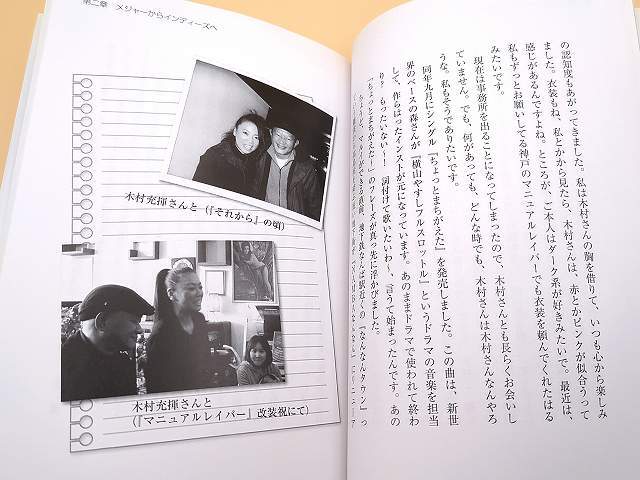 第二章　メジャーからインディーズへ
木村充揮さんと（『それから』の頃）
木村充揮さんと
（『マニュアルレイバー』改装祝にて）
の認知度もあがってきました。私は木村さんの胸を借りて、いつも心から楽しみ
ました。衣装もね、私とかから見たら、木村さんは、赤とかピンクが似合うって
感じがあるんですよね。ところが、ご本人はダーク系が好きみたいで。最近は、
私もずっとお願いしてる神戸のマニュアルレイバーでも衣装を頼んでくれたはる
みたいです。
現在は事務所を出ることになってしまったので、木村さんとも長らくお会いし
ていません。でも、何があっても、どんな時でも、木村さんは木村さんなんやろ
うな。私もそうでありたいです。
同年九月にシングル『ちょっとまちがえた』を発売しました。この曲は、新世
界のベースの森さんが『横山やすしフルスロットル』というドラマの音楽を担当
して、作らはったインストが元になっています。あのままドラマで使われて終わ
り？　もったいない！　詞付けて歌いたいわ〜、言うて始まったんです。あの
「ちょっとまちがえた！」のフレーズが真っ先に浮かびました。